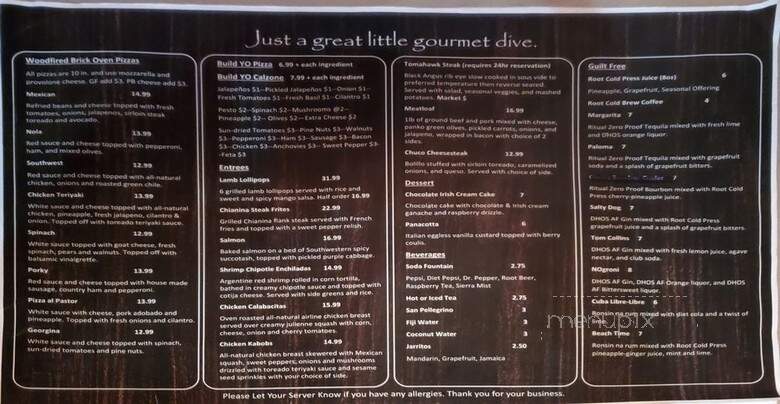 Just a great little gourmet dive.
Woodfired Brick Oven Pizzas
All pizzas are 10 in. and use mozzarella and
provolone cheese. GF add $3. PB cheese add $3.
Mexican 14.99
Refried beans and cheese topped with fresh
tomatoes, onions, jalapenos, sirloin steak
toreado and avocado.
Nola 13.99
Red sauce and cheese topped with pepperoni,
ham, and mixed olives.
Southwest 12.99
Red sauce and cheese topped with all-natural
chicken, onions and roasted green chile.
Chicken Teriyaki 13.99
White sauce and cheese topped with all-natural
chicken, pineapple, fresh jalapeno, cilantro &
onion. Topped off with toreado teriyaki sauce.
Spinach 12.99
White sauce topped with goat cheese, fresh
spinach, pears and walnuts. Topped off with
balsamic vinaigrette.
Porky 13.99
Red sauce and cheese topped with house made
sausage, country ham and pepperoni.
Pizza al Pastor 13.99
White sauce with cheese, pork adobado and
pineapple. Topped with fresh onions and cilantro.
Georgina 12.99
White sauce and cheese topped with spinach,
sun-dried tomatoes and pine nuts.
Build YO Pizza 6.99 + each ingredient
Build YO Calzone 7.99 + each ingredient
Jalapeños $1--Pickled Jalapeños $1--Onion $1--
Fresh Tomatoes $1--Fresh Basil $1--Cilantro $1
Pesto $2--Spinach $2--Mushrooms @2--
Pineapple $2--Olives $2--Extra Cheese $2
Sun-dried Tomatoes $3--Pine Nuts $3--Walnuts
$3--Pepperoni $3--Ham $3--Sausage $3--Bacon
$3--Chicken $3--Anchovies $3--Sweet Pepper $3-
-Feta $3
Entrees
Lamb Lollipops 31.99
6 grilled lamb lollipops served with rice and
sweet and spicy mango salsa. Half order 16.99
Chianina Steak Frites 22.99
Grilled Chianina flank steak served with French
fries and topped with a sweet pepper relish.
Salmon 16.99
Baked salmon on a bed of Southwestern spicy
succotash, topped with pickled purple cabbage.
Shrimp Chipotle Enchiladas 14.99
Argentine red shrimp rolled in corn tortilla,
bathed in creamy chipotle sauce and topped with
cotija cheese. Served with side greens and rice.
Chicken Calabacitas 15.99
Oven roasted all-natural airline chicken breast
served over creamy julienne squash with corn,
cheese, onion and cherry tomatoes.
Chicken Kabobs 14.99
All-natural chicken breast skewered with Mexican
squash, sweet peppers, onions and mushrooms
drizzled with toreado teriyaki sauce and sesame
seed sprinkles with your choice of side.
Tomahawk Steak (requires 24hr reservation)
Black Angus rib eye slow cooked in sous vide to
preferred temperature then reverse seared.
Served with salad, seasonal veggies, and mashed
potatoes. Market $
Meatloaf 16.99
1lb of ground beef and pork mixed with cheese,
panko green olives, pickled carrots, onions, and
jalapeno, wrapped in bacon with choice of 2
sides.
Chuco Cheesesteak 12.99
Bolillo stuffed with sirloin toreado, caramelized
onions, and queso. Served with choice of side.
Dessert
Chocolate Irish Cream Cake 7
Chocolate cake with chocolate & Irish cream
ganache and raspberry drizzle.
Panacotta 6
Italian eggless vanilla custard topped with berry
coulis.
Beverages
Soda Fountain 2.75
Pepsi, Diet Pepsi, Dr. Pepper, Root Beer,
Raspberry Tea, Sierra Mist
Hot or Iced Tea 2.75
San Pellegrino 3
Fiji Water 3
Coconut Water 3
Jarritos 2.50
Mandarin, Grapefruit, Jamaica
Guilt Free
Root Cold Press Juice (8oz) 6
Pineapple, Grapefruit, Seasonal Offering
Root Cold Brew Coffee 4
Margarita 7
Ritual Zero Proof Tequila mixed with fresh lime
and DHOS orange liquor.
Paloma 7
Ritual Zero Proof Tequila mixed with grapefruit
soda and a splash of grapefruit bitters.
7
Ritual Zero Proof Bourbon mixed with Root Cold
Press cherry-pineapple juice.
Salty Dog 7
DHOS AF Gin mixed with Root Cold Press
grapefruit juice and a splash of grapefruit bitters.
Tom Collins 7
DHOS AF Gin mixed with fresh lemon juice, agave
nectar, and club soda.
NOgroni 8
DHOS AF Gin, DHOS AF Orange liquor, and DHOS
AF Bittersweet liquor.
Cuba Libre-Libre 6
mixed with diet cola and a twist of
Beach Time 7
Ronsin na rum mixed with Root Cold Press
pineapple-ginger juice, mint and lime.
menupix
Please Let Your Server Know if you have any allergies. Thank you for your business.